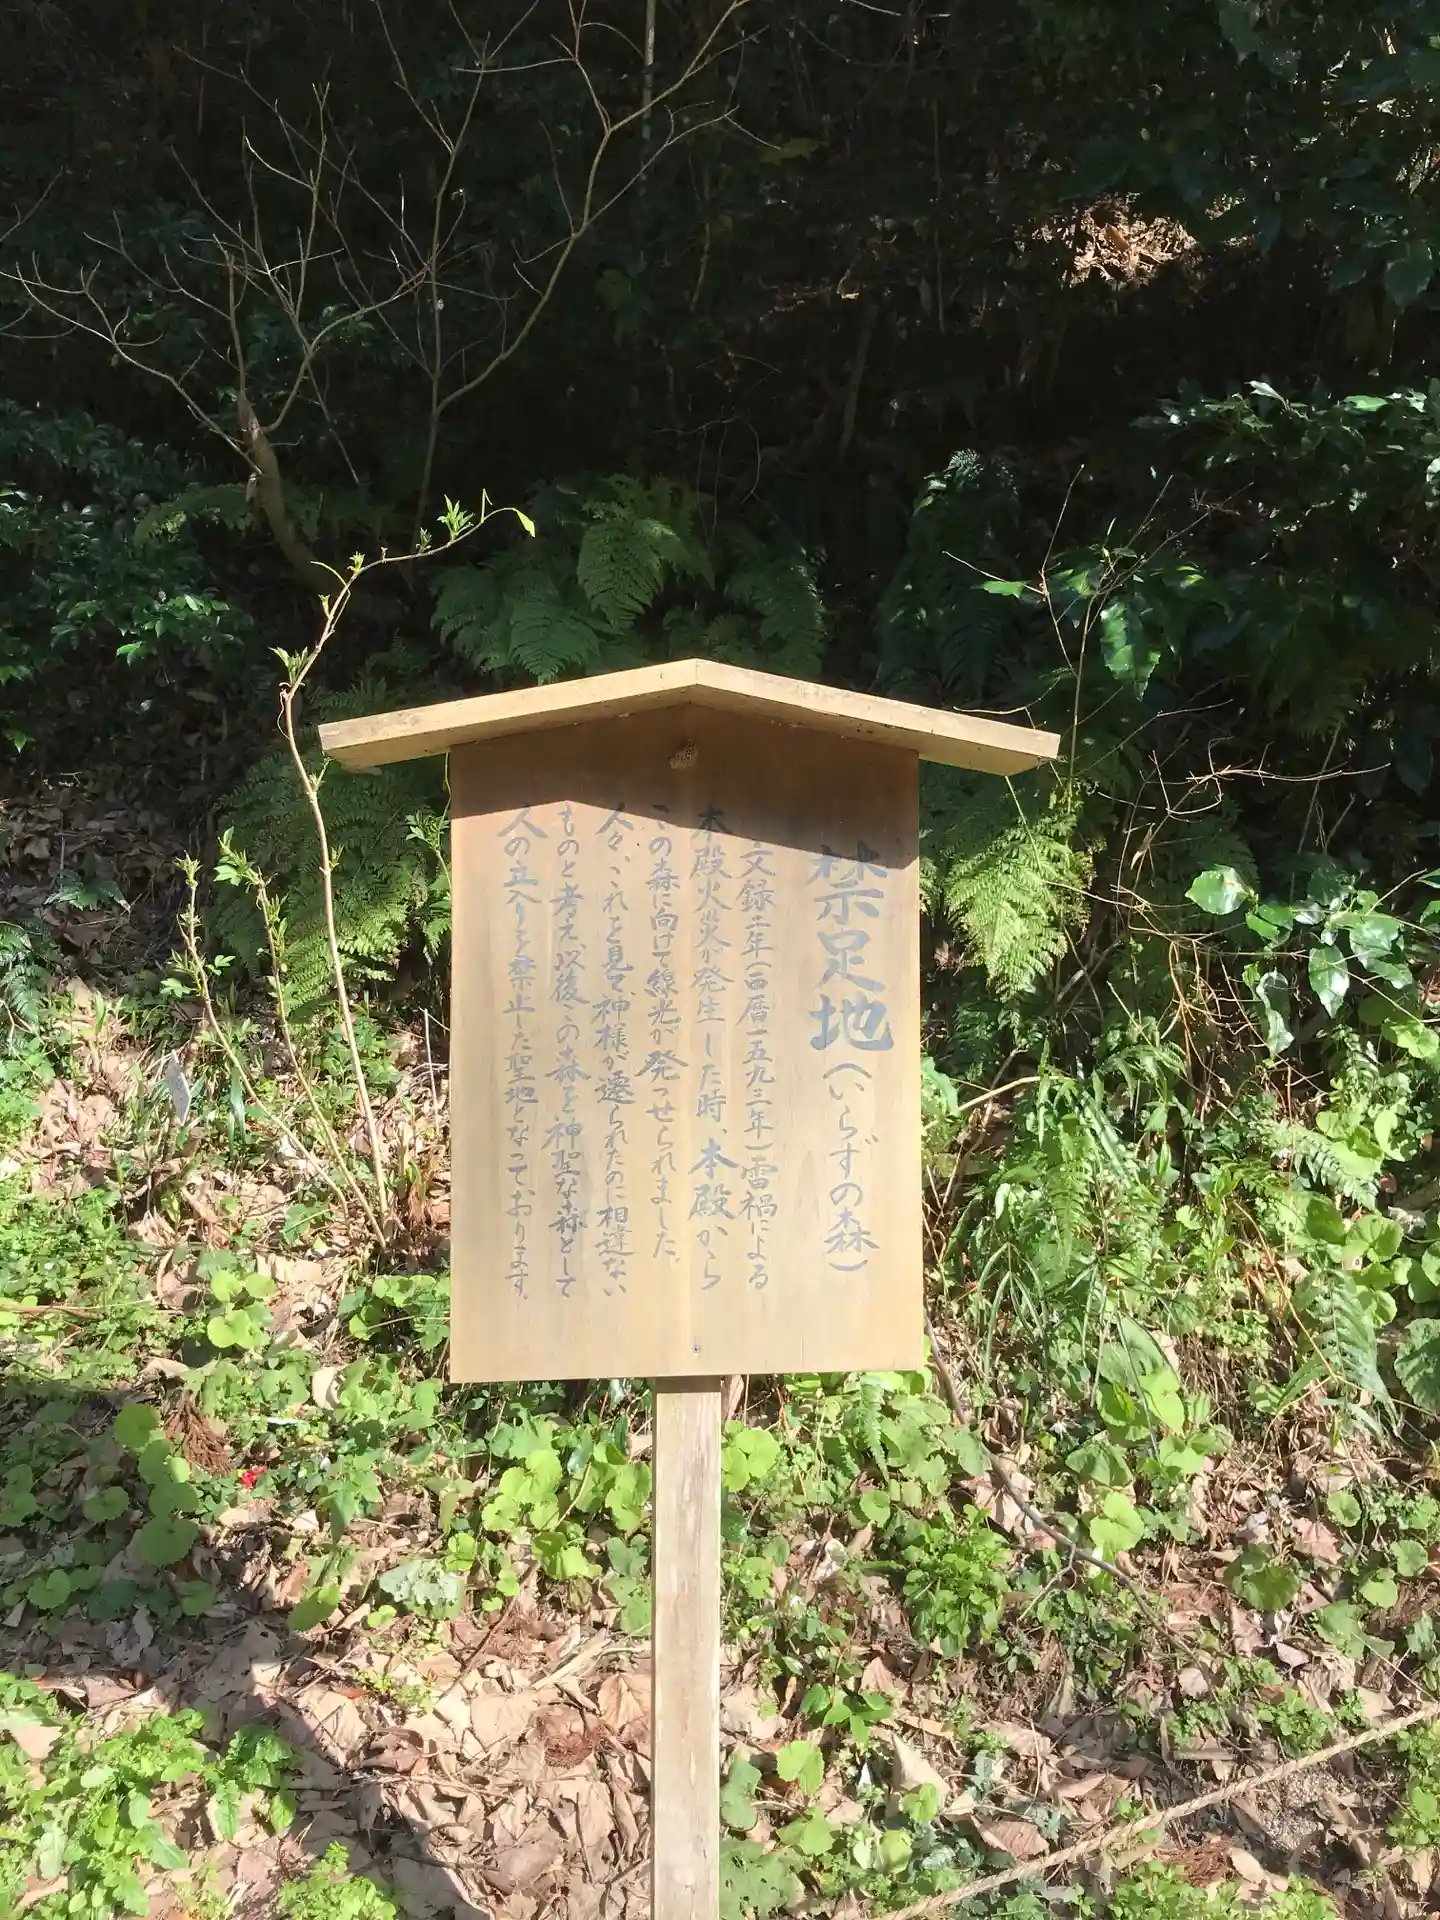 禁足地(いらずの森)
文録二年(西暦一五九三年)雷禍による
本殿火災が発生した時、本殿から
この森に向けて線光が発っせられました。
人々、これを見て神様が遷られたのに相違ない
ものと考え、以後この森を神聖な森として
人の立入りを禁止した聖地となっております。